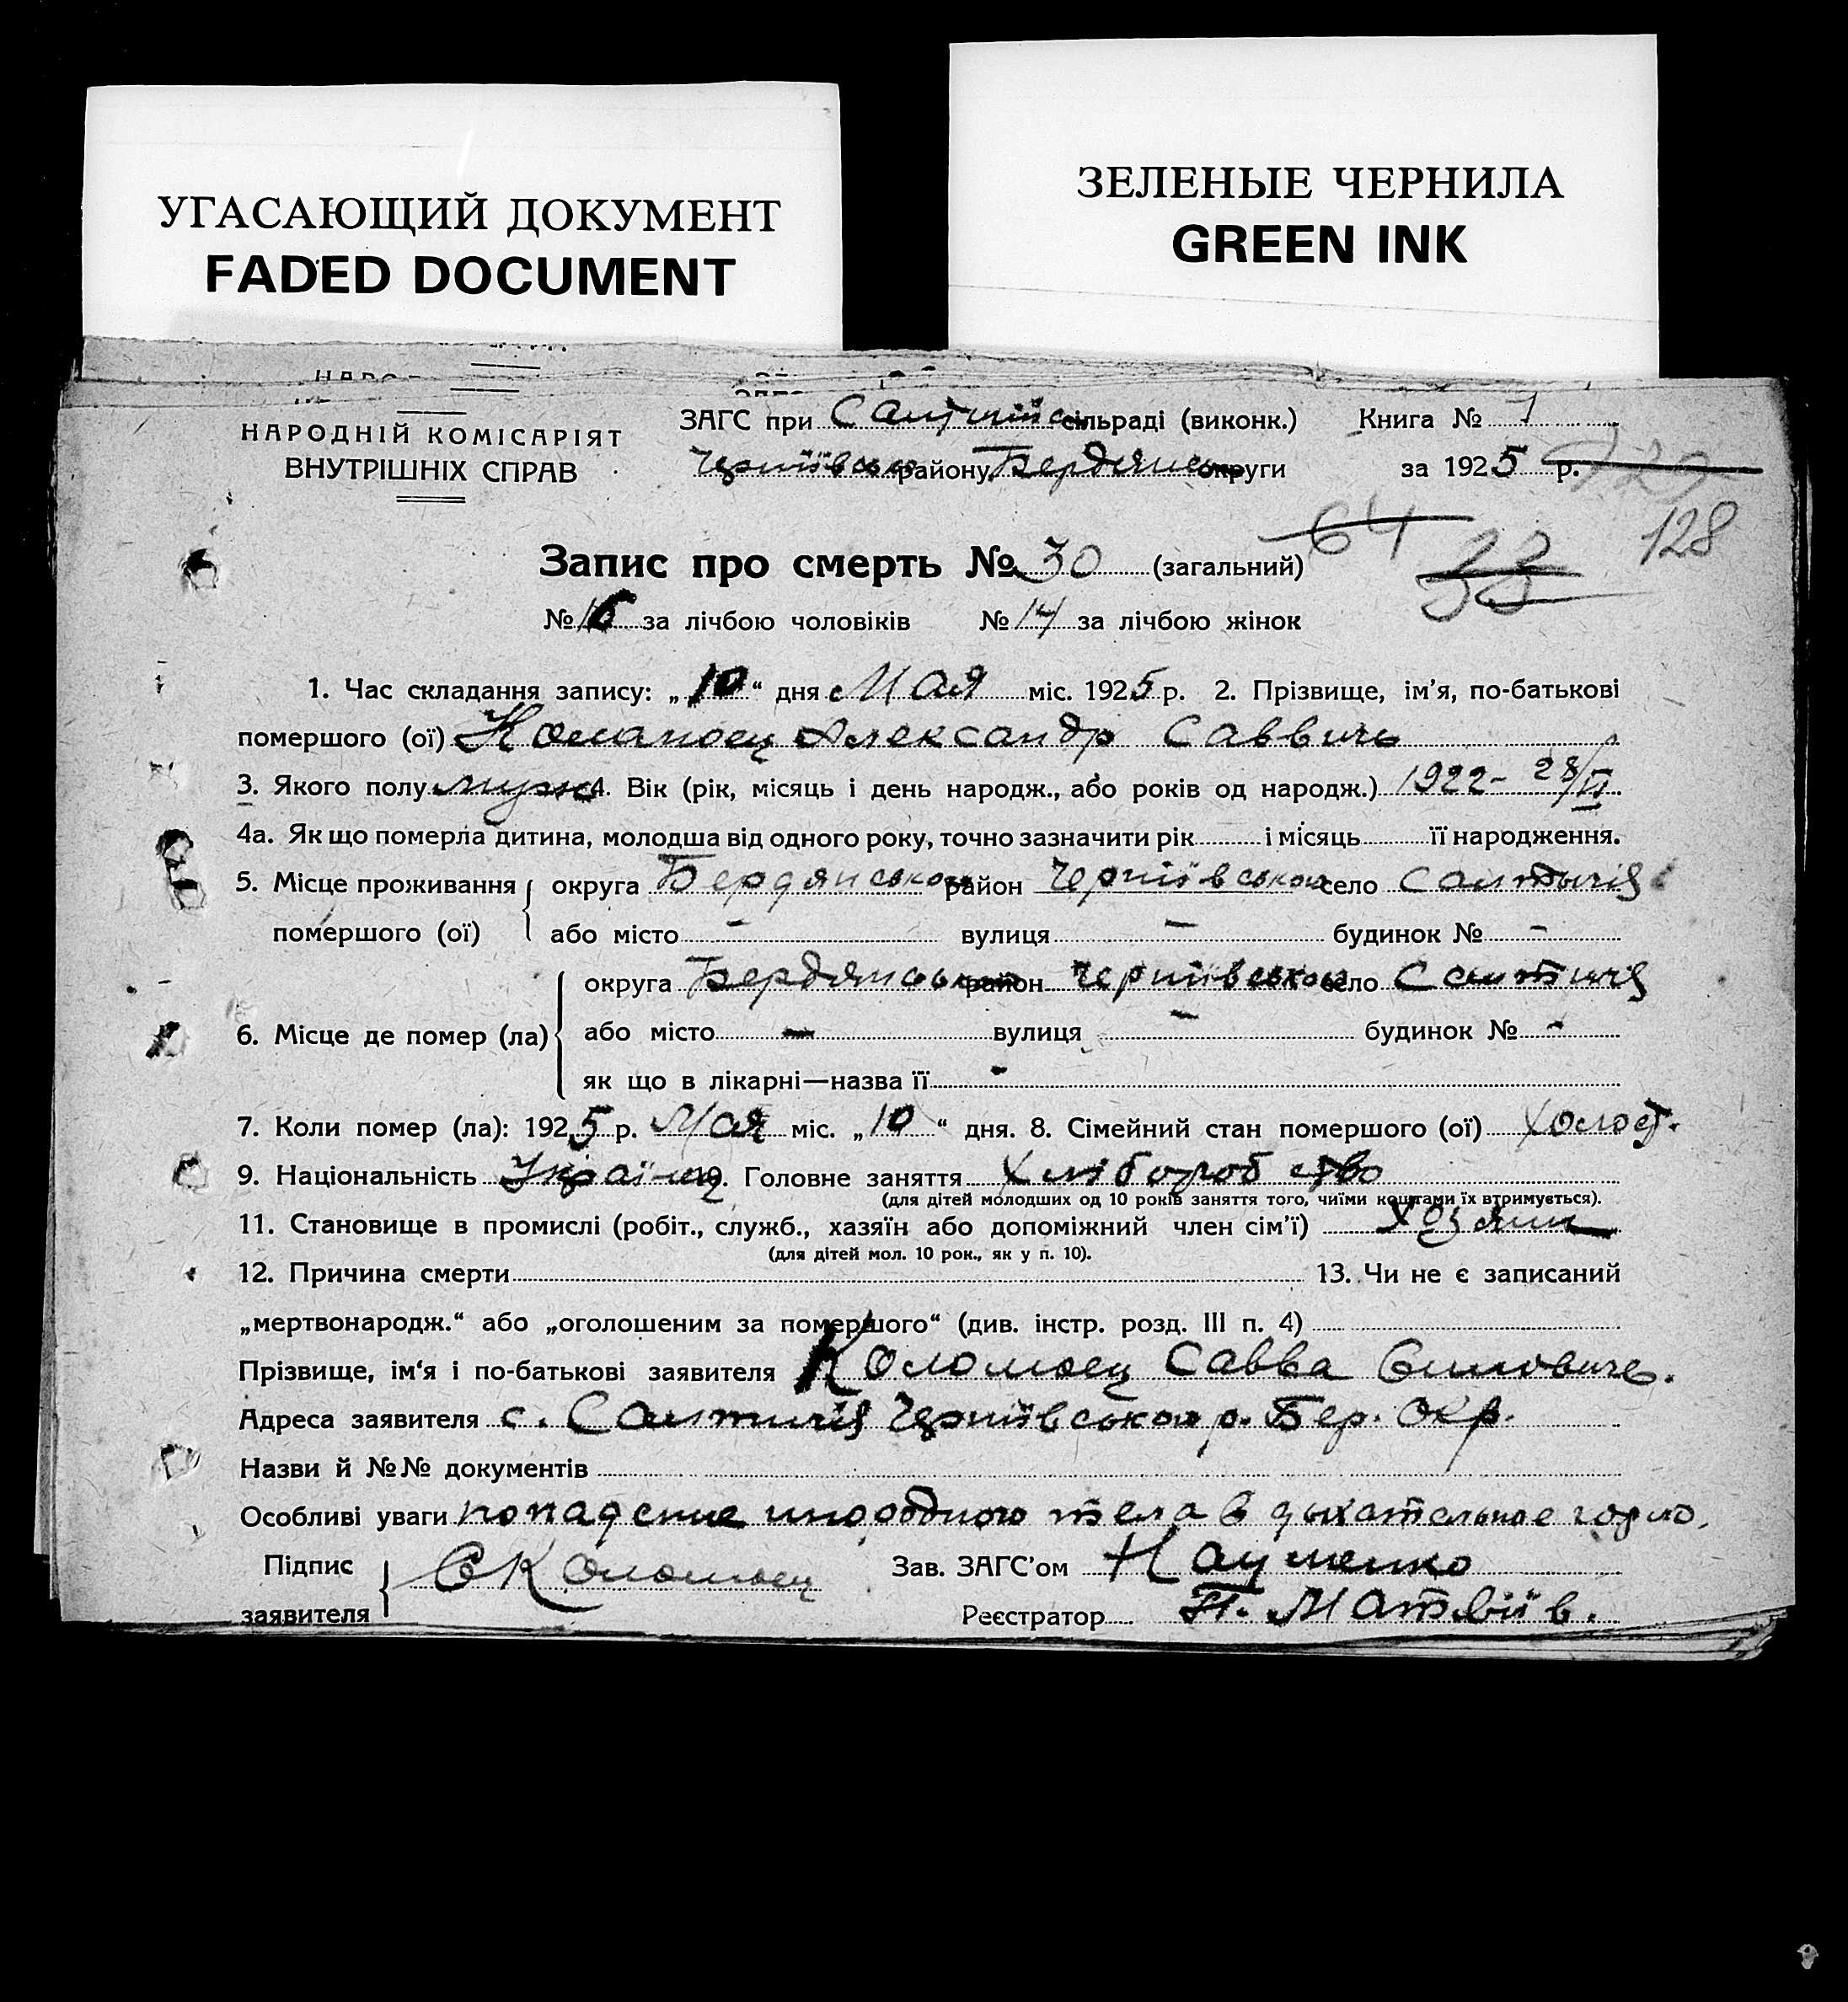 УГАСАЮЩИЙ ДОКУМЕНТ
FADED DOCUMENT
ЗЕЛЕНЫЕ ЧЕРНИЛА
GREEN INK
НАРОДНІЙ КОМІСАРІЯТ
ВНУТРІШНІХ СПРАВ
ЗАГС при сільраді (виконк.) Книга № 1
району Бердянсько округи за 1925 р.
128
64
Запис про смерть № 30 (загальний)
№ 16 за лічбою чоловіків № 14 за лічбою жінок
1. Час складання запису: „10“ дня Мая міс. 1925 р. 2. Прізвище, ім'я, по-батькові
помершого (ої) Александр Саввичь
3. Якого полу муж 4. Вік (рік, місяць і день народж., або років од народж.) 1922-
4а. Як що померла дитина, молодша від одного року, точно зазначити рік і місяць її народження.
5. Місце проживання округа Бердянського район Черніївського село Салтичія
помершого (ої) або місто - вулиця - будинок № -
округа Бердянського район Черніївського село Салтичія
6. Місце де помер (ла) або місто - вулиця - будинок № -
як що в лікарні—назва її -
7. Коли помер (ла): 1925 р. Мая міс. „10“ дня. 8. Сімейний стан помершого (ої) холост.
9. Національність Українец 10. Головне заняття Хліборобство
(для дітей молодших од 10 років заняття того, чиїми коштами їх втримується).
11. Становище в промислі (робіт., служб., хазяїн або допоміжний член сім'ї) Хозяин
(для дітей мол. 10 рок., як у п. 10).
12. Причина смерти 13. Чи не є записаний
„мертвонародж.“ або „оголошеним за помершого“ (див. інстр. розд. III п. 4)
Прізвище, ім'я і по-батькові заявителя Коломоец Савва
Адреса заявителя с. Салтичія Черніївського р. Бер. Окр.
Назви й №№ документів
Особливі уваги попадение инородного тела в дыхательное горло.
Підпис заявителя Коломоец Зав. ЗАГС'ом Науменко
Реєстратор П. Матвіїв.